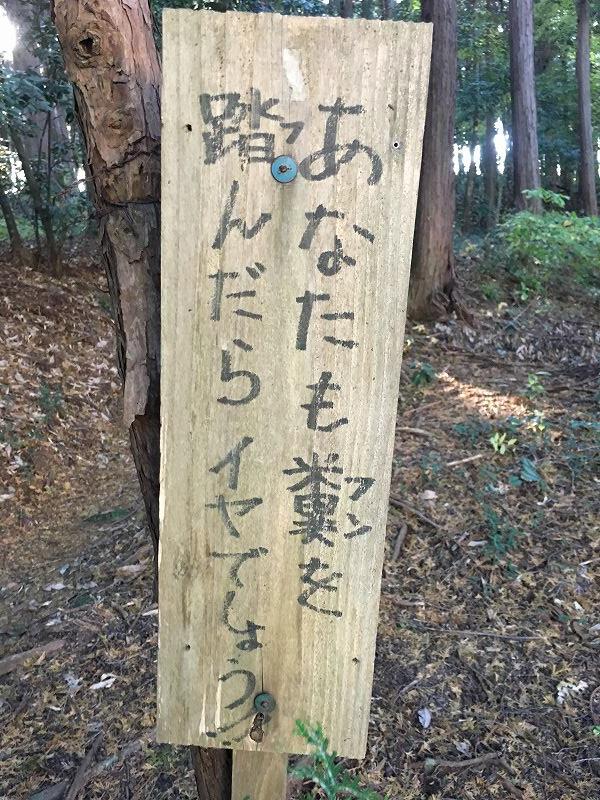 あなたも糞フンを
踏フんだらイヤでしょう